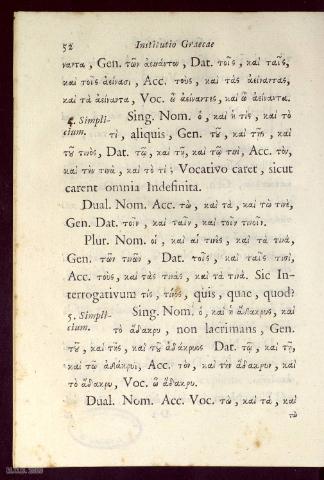 52 Institutio Graecae
ναντα, Gen. τῶν ἀεινάντων, Dat. τοῖς, καὶ ταῖς,
καὶ τοῖς ἀείνασι, Acc. τοὺς, καὶ τὰς ἀείναντας,
καὶ τὰ ἀείναντα, Voc. ὦ ἀείναντες, καὶ ὦ ἀείναντα.
4. Simpli- Sing. Nom. ὁ, καὶ ἡ τὶς, καὶ τὸ
cium. τὶ, aliquis, Gen. τοῦ, καὶ τῆς, καὶ
τοῦ τινὸς, Dat. τῷ, καὶ τῇ, καὶ τῷ τινὶ, Acc. τὸν,
καὶ τὴν τινὰ, καὶ τὸ τὶ; Vocativo caret, sicut
carent omnia Indefinita.
Dual. Nom. Acc. τὼ, καὶ τὰ, καὶ τὼ τινὲ,
Gen. Dat. τοῖν, καὶ ταῖν, καὶ τοῖν τινοῖν.
Plur. Nom. οἱ, καὶ αἱ τινὲς, καὶ τὰ τινὰ,
Gen. τῶν τινῶν, Dat. τοῖς, καὶ ταῖς τισὶ,
Acc. τοὺς, καὶ τὰς τινὰς, καὶ τὰ τινά. Sic In-
terrogativum τίς, τίνος, quis, quae, quod?
5. Simpli- Sing. Nom. ὁ, καὶ ἡ ἄδακρυς, καὶ
cium. τὸ ἄδακρυ, non lacrimans, Gen.
τοῦ, καὶ τῆς, καὶ τοῦ ἀδάκρυος Dat. τῷ, καὶ τῇ,
καὶ τῷ ἀδάκρυϊ, Acc. τὸν, καὶ τὴν ἄδακρυν, καὶ
τὸ ἄδακρυ, Voc. ὦ ἄδακρυ.
Dual. Nom. Acc. Voc. τὼ, καὶ τὰ, καὶ
τὼ